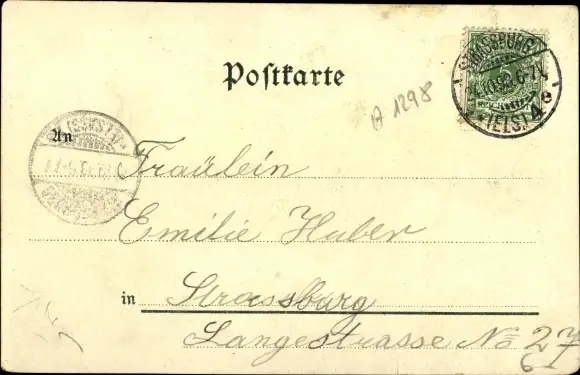 Postkarte
STRASSBURG
(ELS.) 4 e
A 1298
An
Fräulein
Emilie Huber
in Strassburg
Langestrasse No 27